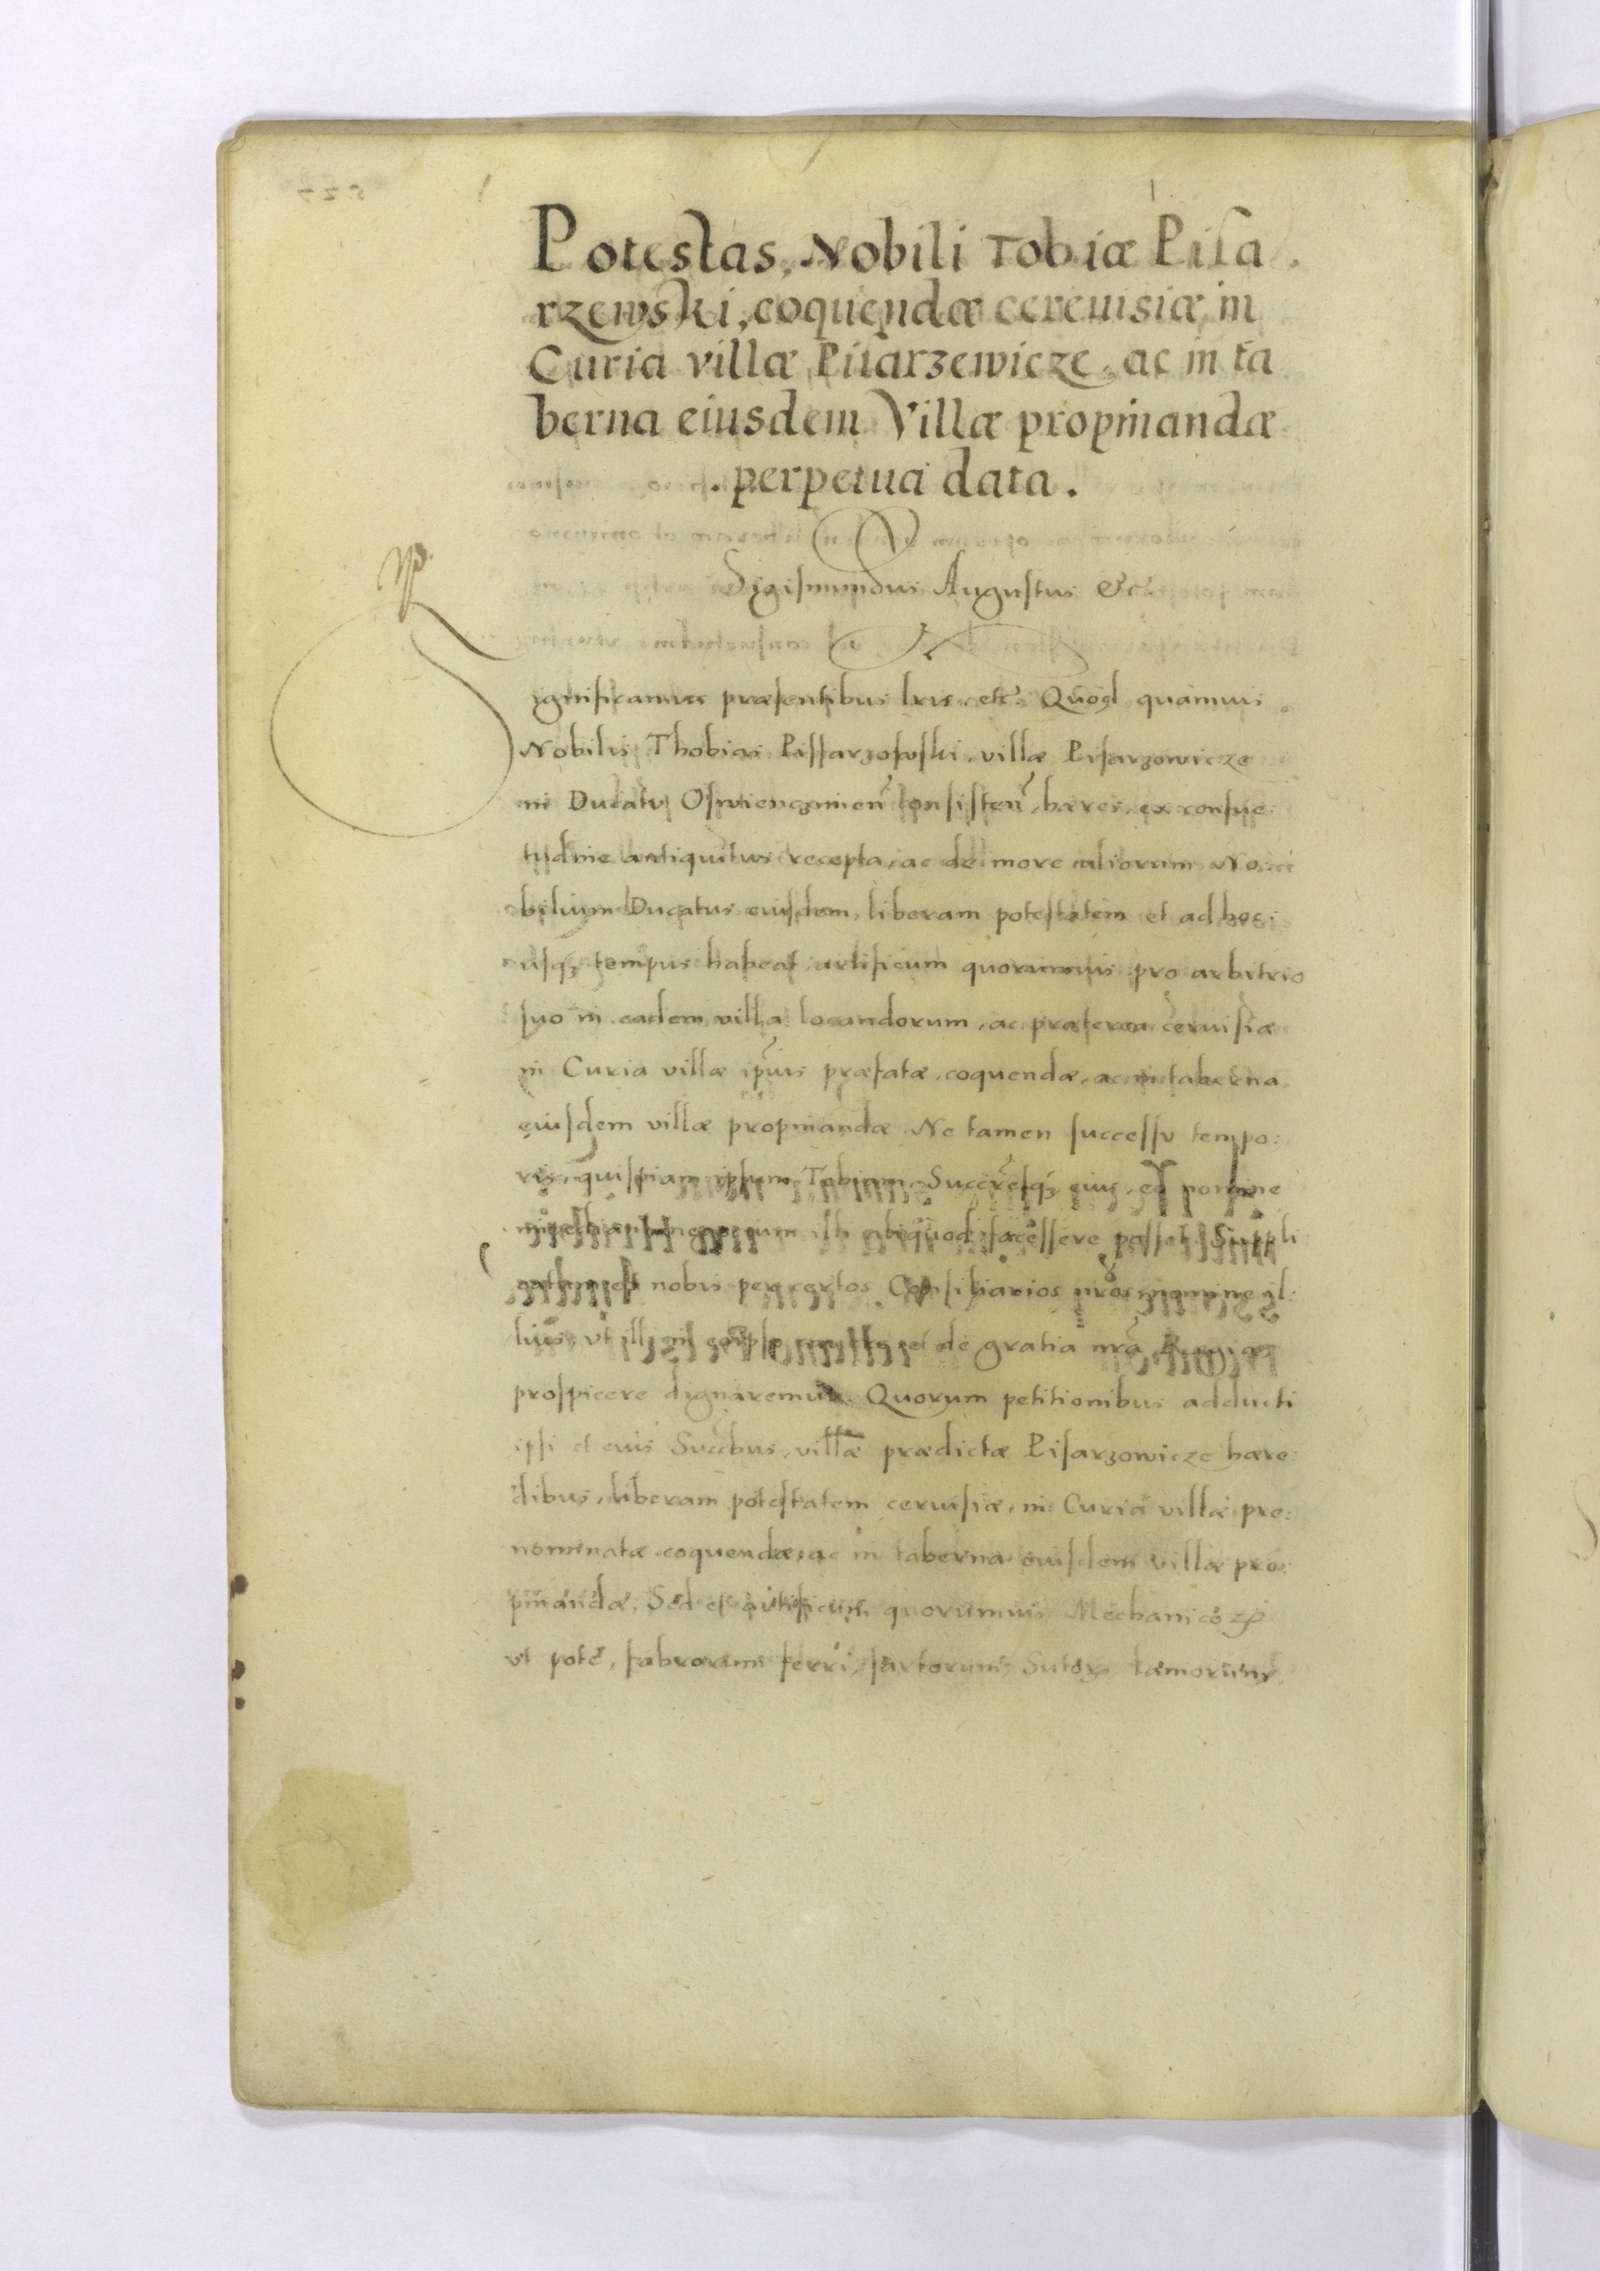 Potestas, Nobili Tobiæ Pisa
rzewski, coquendæ cereuisiæ, in
Curia villæ Pisarzewicze, ac in ta
berna eiusdem Villæ propinandæ
. perpetua data .
Sigismundus Augustus &c̄
Significamus præsentibus lris. etc̄. Quod quamuis
Nobilis Thobias Pissarzowski, villæ Pisarzowicze
in Ducatu Oswienczimen̄ consisten̄, hæres, ex consue
tudine antiquitus recepta, ac de more aliorum No
bilium Ducatus eiusdem, liberam potestatem et ad hoc
usqȝ tempus habeat artificum quorumuis pro arbitrio
suo in eadem villa locandorum, ac præterea ceruisiæ
in Curia villæ ip̄ius præfatæ, coquendæ, ac in taberna
eiusdem villæ propinandæ Ne tamen successu tempo:
ris, quispiam ipsum Tobiam, Succresqȝ eius, eo nomine
illi aliquod facessere posset Suppli
catum est nobis per certos Consiliarios nros nomine il:
lius, vt illi in et de gratia nrā Regia
prospicere dignaremur. Quorum petitionibus adducti
ipsi et eius Succ̄bus, villæ prædictæ Pisarzowicze hære
dibus, liberam potestatem ceruisiæ, in Curia villæ pre:
nominatæ coquendæ, ac in taberna eiusdem villæ pro
pinandæ, Sed et artificum quorumuis Mechanicoꝝ
vt pote, fabrorum ferri, sartorum, Sutoꝝ